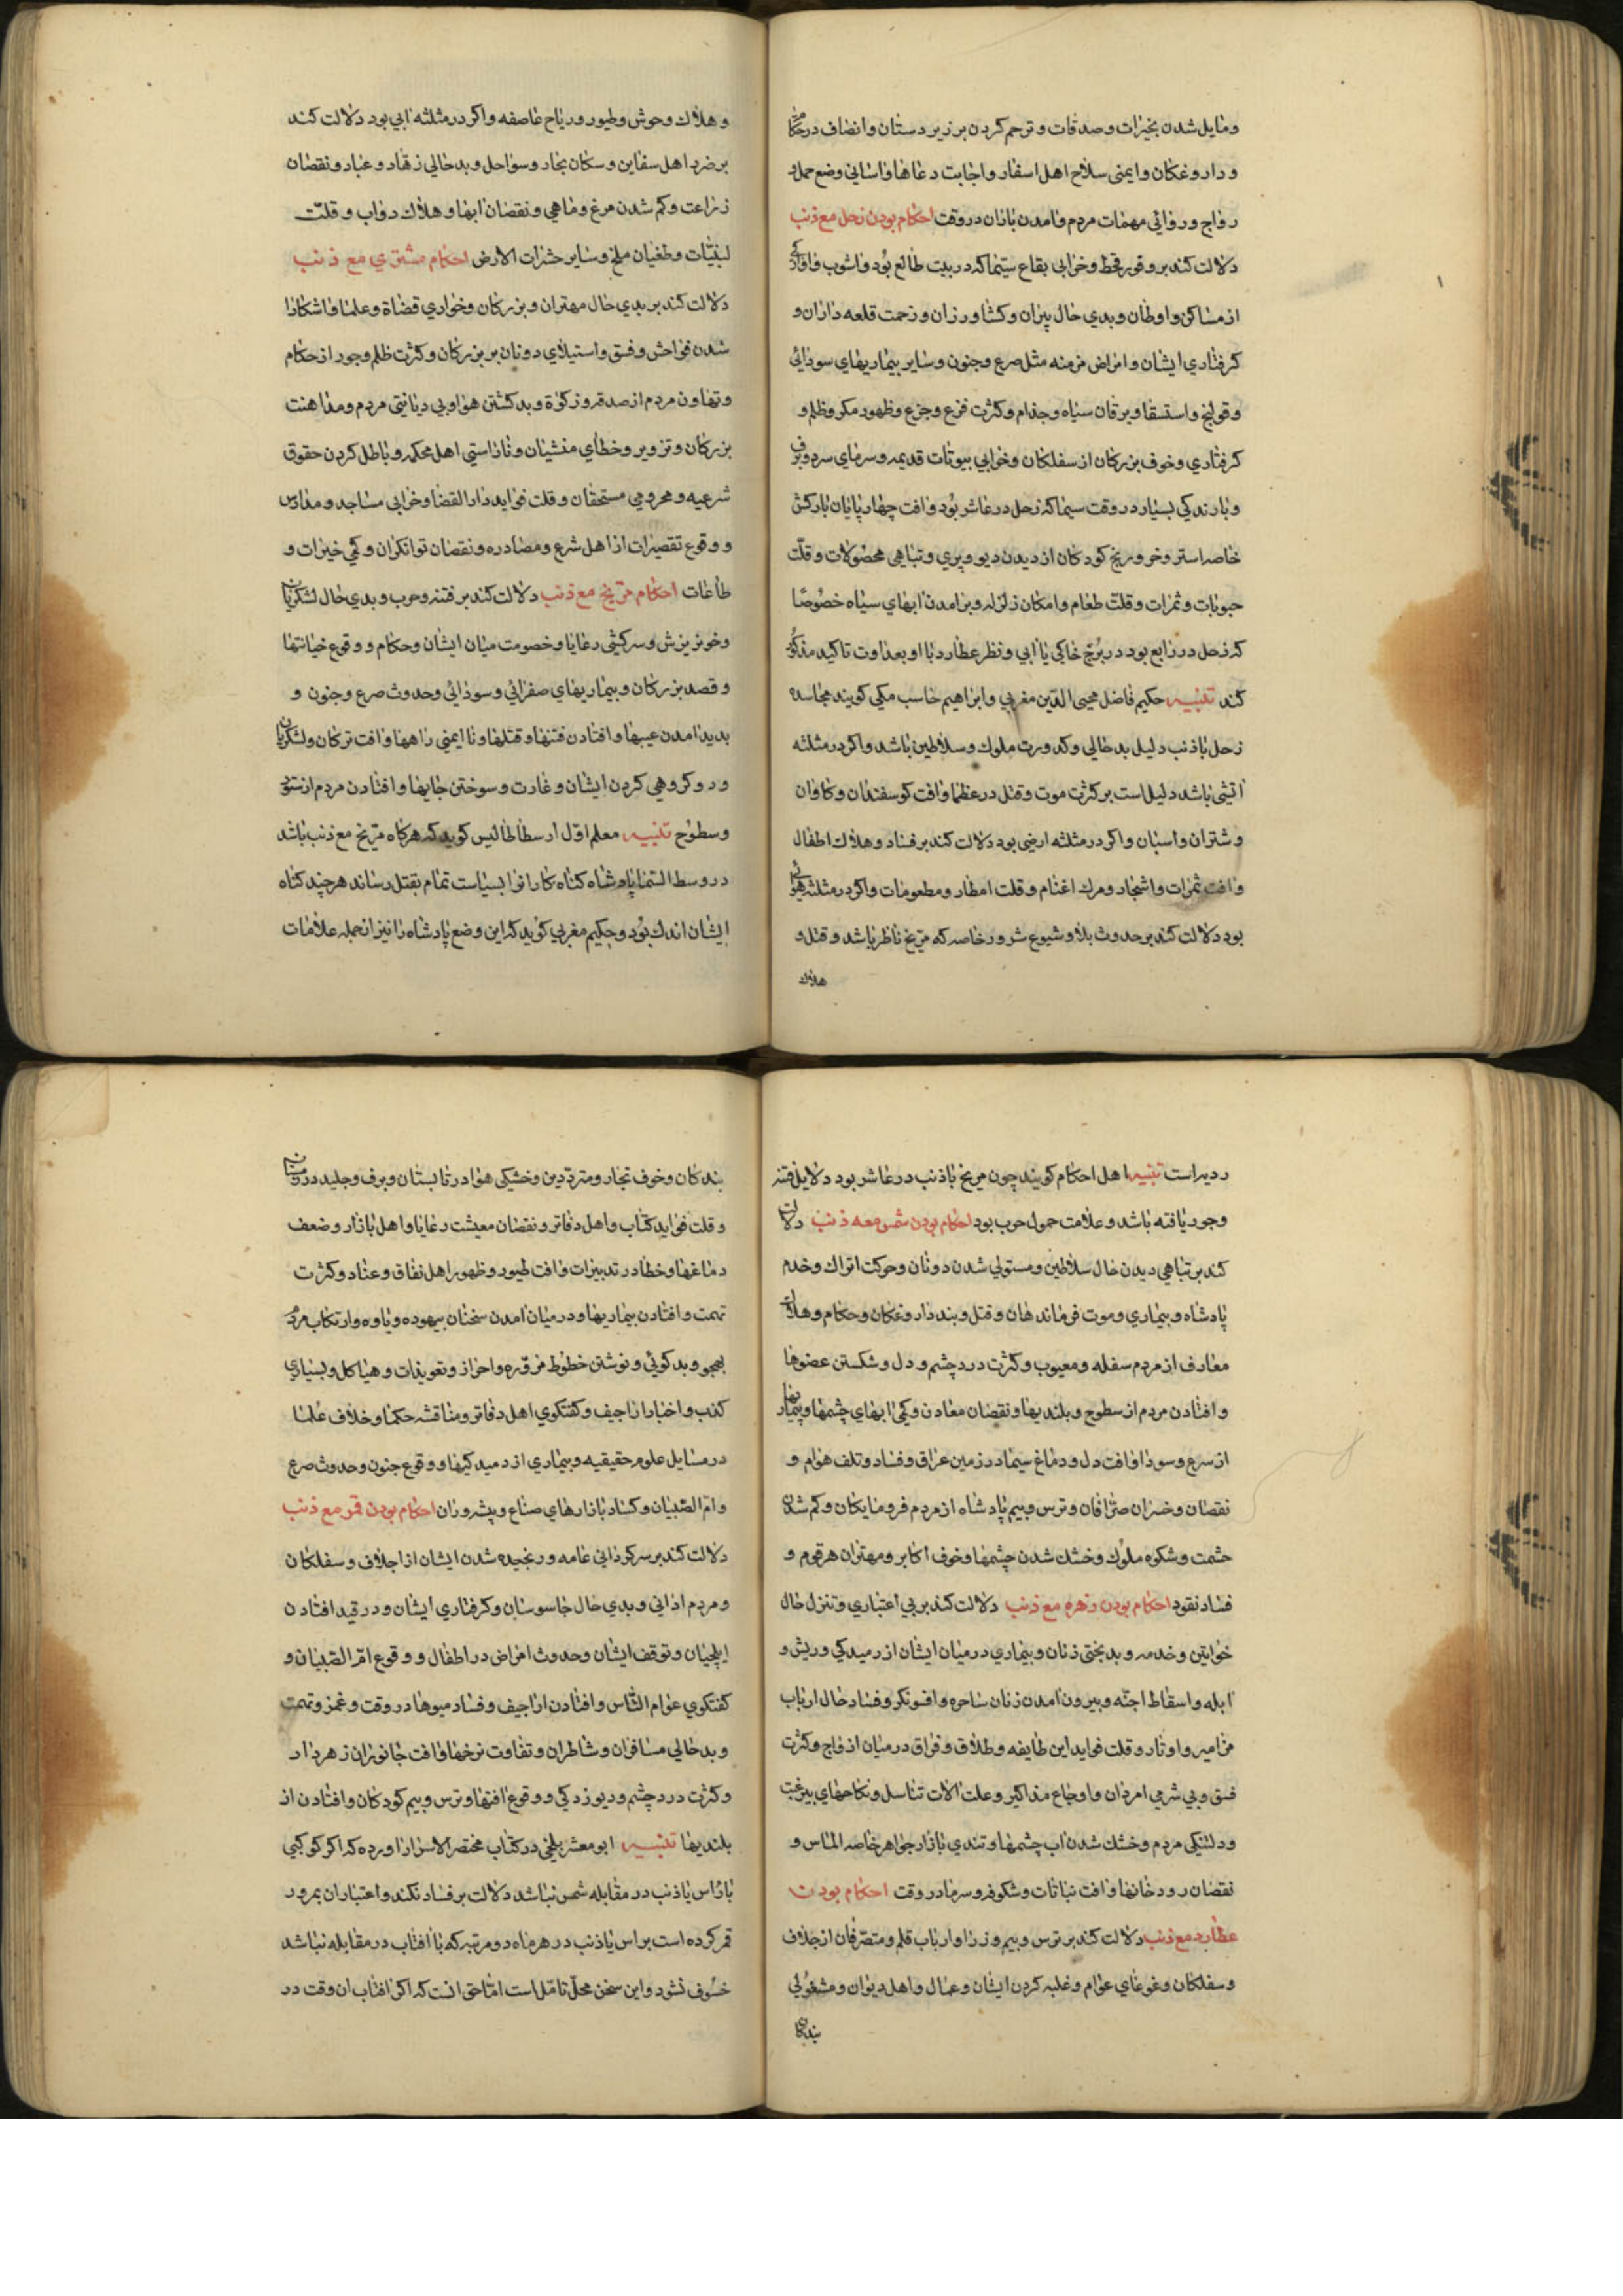 ومایل شدن بخیرات وصدقات وترحم کردن بر زیردستان وانصاف در حکام
و داروغکان وایمنی سلاح اهل اسفار واجابت دعاها واسانی وضع حمل و
رواج وروائی مهمات مردم وامدن باران در وقت احکام بودن زحل مع ذنب
دلالت کند بر وقوع قحط وخرابی بقاع سیّما که در بیت طالع بُود واشوب
از مساکن واوطان وبدی حال پیران وکشاورزان وزحمت قلعه داران و
کرفتاری ایشان وامراض مزمنه مثل صرع وجنون وسایر بیماریهای سودائی
وقولنج واستسقا ویرقان سیاه وجذام وکثرت فزع وجزع وظهور مکر وظلم و
کرفتاری وخوف بزرکان از سفلکان وخرابی بیوتات قدیمه وسرمای سرد وبرف
وبارندکی بسیار در وقت سیما که زحل در عاشر بُود وافت چهارپایان بارکش
خاصه استر وخر ورنج کودکان از دیدن دیو وپری وتباهی محصولات وقلّت
حبوبات وثمرات وقلّت طعام وامکان زلزله وبرامدن ابهای سیاه خصُوصًا
که زحل در رابع بود در بُرج خاکی یا ابی ونظر عطارد با او بعداوت تاکید مذکُور
کند تنبیه حکیم فاضل محیی الدّین مغربی وابراهیم حاسب مکی کویند مجاسده
زحل با ذنب دلیل بدحالی وکدورت ملوک وسلاطین باشد واکر در مثلثه
اتشی باشد دلیل است بر کثرت موت وقتل در عظما وافت کوسفندان وکاوان
وشتران واسبان واکر در مثلثه ارضی بود دلالت کند بر فساد وهلاک اطفال
وافت ثمرات واشجار ومرک اغنام وقلت امطار ومطعومات واکر در مثلثه هوائی
بود دلالت کند بر حدوث بلا وشیوع شرور خاصه که مرّیخ ناظر باشد وقتل و
هلاک
وهلاک وحوش وطیور وریاح عاصفه واکر در مثلثه ابی بود دلالت کند
بر ضرر اهل سفاین وسکان بحار وسواحل وبدحالی زهاد وعباد ونقصان
زراعت وکم شدن مرغ وماهی ونقصان ابها وهلاک دواب وقلّت
لبنیّات وطغیان ملخ وسایر حشرات الارض احکام مشتری مع ذنب
دلالت کند بر بدی حال مهتران وبزرکان وخواری قضاة وعلما واشکارا
شدن فواحش وفسق واستیلای دونان بر بزرکان وکثرت ظلم وجور از حکام
وتهاون مردم از صدقه وزکوة وبد کشتن هوا وبی دیانیتی مردم ومداهنت
بزرکان وتزویر وخطای منشیان وناراستی اهل محکمه وباطل کردن حقوق
شرعیه ومحرومی مستحقان وقلت فواید دار القضا وخرابی مساجد ومدارس
ووقوع تقصیرات از اهل شرع ومصادره ونقصان توانکران وکمی خیرات و
طاعات احکام مرّیخ مع ذنب دلالت کند بر فتنه وحرب وبدی حال لشکریان
وخونریزش وسرکشی رعایا وخصومت میان ایشان وحکام ووقوع خیانتها
وقصد بزرکان وبیماریهای صفرائی وسودائی وحدوث صرع وجنون و
بدید امدن عیبها وافتادن فتنها وقتلها ونا ایمنی راهها وافت ترکان ولشکریان
ودوکروهی کردن ایشان وغارت وسوختن جایها وافتادن مردم از ستور
وسطوح تنبیه معلم اوّل ارسطاطالیس کوید که هرکاه مرّیخ مع ذنب باشد
در وسط السّما پادشاه کناه کارانرا بسیاست تمام بقتل رساند هر چند کناه
ایشان اندک بُود وحکیم مغربی کوید که این وضع پادشاه را نیز از جمله علامات
ردیه است تنبیه اهل احکام کویند چون مریخ با ذنب در عاشر بود دلایل فتنه
وجود یافته باشد وعلامت حمول حرب بود احکام بودن شمس معه ذنب دلالت
کند بر تباهی دیدن حال سلاطین ومستولی شدن دونان وحرکت اتراک وخدم
پادشاه وبیماری وموت فرماندهان وقتل وبند داروغکان وحکام وهلاک
معارف از مردم سفله ومعیوب وکثرت درد چشم ودل وشکستن عضوها
وافتادن مردم از سطوح وبلندیها ونقصان معادن وکمی ابهای چشمها وبیماریها
از سرع وسودا وافت دل ودماغ سیما در زمین عراق وفساد وتلف هوام و
نقصان وخسران صرّافان وترس وبیم پادشاه از مردم فرومایکان وکم شدن
حشمت وشکوه ملوُک وخشک شدن چشمها وخوف اکابر ومهتران هر قوم و
فساد نقود احکام بودن زهره مع ذنب دلالت کند بر بی اعتباری وتنزل حال
خواتین وخدمه وبدبختی زنان وبیماری در میان ایشان از رمیدکی وریش و
ابله واسقاط اجنّه وبیرون امدن زنان ساحره وافسونکر وفساد حال ارباب
مزامیر واوتار وقلت فواید این طایفه وطلاق وفراق در میان ازواج وکثرت
فسق وبی شرمی امردان واوجاع مذاکیر وعلت الات تناسل ونکاحهای بیرغبت
ودلتنکی مردم وخشک شدن اب چشمها وتندی بازار جواهر خاصه الماس و
نقصان رودخانها وافت نباتات وشکوفه وسرما در وقت احکام بودن
عطارد مع ذنب دلالت کند بر ترس وبیم وزرا وارباب قلم ومتصرّفان از جلاف
وسفلکان وغوغای عوام وغلبه کردن ایشان وعمال واهل دیوان ومشغُولی
بندکان
بندکان وخوف تجار ومتردّدین وخشیکی هوا در تابستان وبرف وجلید در زمستان
وقلت فواید کتاب واهل دفاتر ونقصان معیشت رعایا واهل بازار وضعف
دماغها وخطا در تدبیرات وافت طیور وظهور اهل نفاق وعناد وکثرت
تهمت وافتادن بیماریها ودر میان امدن سخنان بیهوده ویاوه وارتکاب مردم
بهجو وبدکوئی ونوشتن خطوُط مزوّره واحراز وتعویذات وهیاکل وبسیاری
کذب واخبار اراجیف وکفتکوی اهل دفاتر ومناقشه حکما وخلاف عُلما
در مسایل علوم حقیقیه وبیماری از دمیدکیها ووقوع جنون وحدوث صرع
وامّ الصّبیان وکساد بازارهای صناع وپیشه وران احکام بودن قمر مع ذنب
دلالت کند بر سرکردانی عامه ورنجیده شدن ایشان از اجلاف وسفلکان
ومردم ادانی وبدی حال جاسوسان وکرفتاری ایشان ودر قید افتادن
ایلچیان وتوقف ایشان وحدوث امراض در اطفال ووقوع امّ الصّبیان و
کفتکوی عوام النّاس وافتادن اراجیف وفساد میوها در وقت وغمز وتهمت
وبدحالی مسافران وشاطران وتفاوت نرخها وافت جانوران زهردار
وکثرت درد چشم ودیوزدکی ووقوع افتها وترس وبیم کودکان وافتادن از
بلندیها تنبیه ابو معشر بلخی در کتاب مختصر الاسرار اورده که اکر کوکبی
با راس یا ذنب در مقابله شمس نباشد دلالت بر فساد نکند واعتبار ان بمرور
قمر کرده است براس یا ذنب در هر ماه دو مرتبه که با افتاب در مقابله نباشد
خسُوف نشود واین سخن محلّ تامّل است امّا حق انست که اکر افتاب ان وقت در